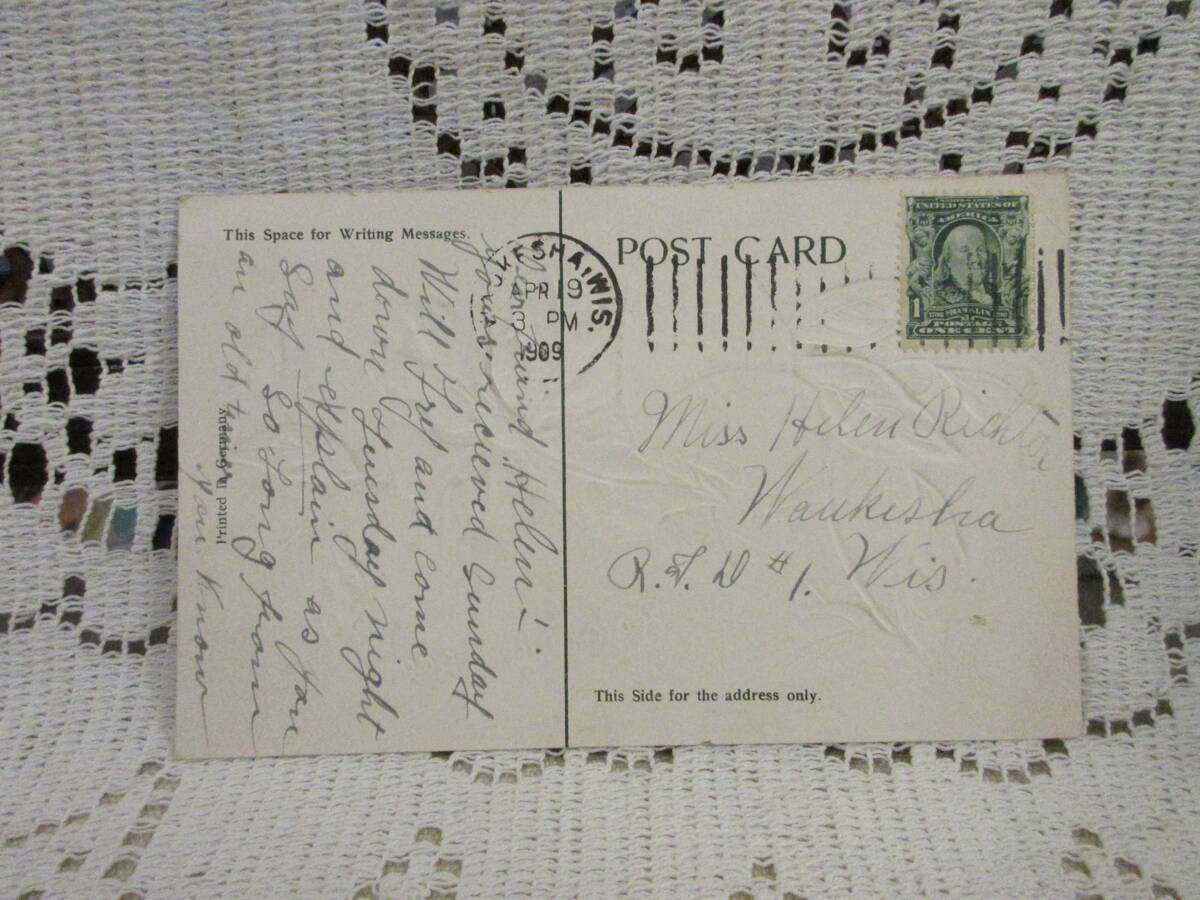 This Space for Writing Messages.
POST CARD
SHA, WIS.
APR 19
PM
1909
UNITED STATES OF
AMERICA
1
FRANKLIN
POSTAGE
ONE CENT
friend Helen:-
yours recieved Sunday
Will Try and come
down Teusday night
and explain as you
Say So Long from
an old
you Know
Printed in Germany
Miss Helen Richter
Waukesha
R.F.D #1. Wis.
This Side for the address only.